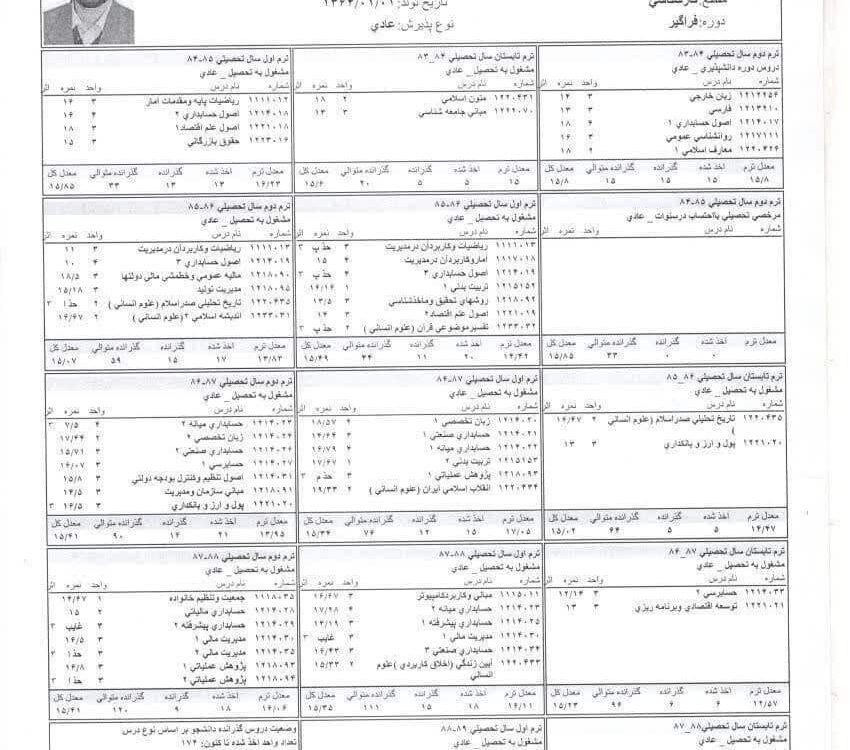 مقطع:کارشناسی
دوره:فراگیر
تاریخ تولد:۱۳۶۴/۰۱/۰۱
نوع پذیرش:عادی
ترم دوم سال تحصیلي ۸۴-۸۳
دروس دوره دانشپذیري _ عادي
شماره نام درس واحد نمره اثر
۱۲۱۲۲۵۴ زبان خارجي ۳ ۱۴
۱۲۱۳۲۱۰ فارسي ۳ ۱۳
۱۲۱۴۰۱۷ اصول حسابداري ۱ ۴ ۱۸
۱۲۱۷۱۱۱ روانشناسي عمومي ۳ ۱۶
۱۲۲۰۴۲۶ معارف اسلامي ۱ ۲ ۱۸
معدل ترم اخذ شده گذرانده گذرانده متوالي معدل کل
۱۵/۸ ۱۵ ۱۵ ۱۵ ۱۵/۸
ترم تابستان سال تحصیلي ۸۴_۸۳
مشغول به تحصیل _ عادي
شماره نام درس واحد نمره اثر
۱۲۲۰۴۳۱ متون اسلامي ۲ ۱۸
۱۲۲۲۰۷۰ مباني جامعه شناسي ۳ ۱۳
معدل ترم اخذ شده گذرانده گذرانده متوالي معدل کل
۱۵ ۵ ۵ ۲۰ ۱۵/۶
ترم اول سال تحصیلي ۸۵-۸۴
مشغول به تحصیل _ عادي
شماره نام درس واحد نمره اثر
۱۱۱۱۰۱۲ ریاضیات پایه ومقدمات آمار ۳ ۱۶
۱۲۱۴۰۱۸ اصول حسابداري ۲ ۴ ۱۶
۱۲۲۱۰۱۸ اصول علم اقتصاد۱ ۳ ۱۸
۱۲۲۳۰۱۶ حقوق بازرگاني ۳ ۱۵
معدل ترم اخذ شده گذرانده گذرانده متوالي معدل کل
۱۶/۲۳ ۱۳ ۱۳ ۳۳ ۱۵/۸۵
ترم دوم سال تحصیلي ۸۵-۸۴
مرخصي تحصیلي بااحتساب درسنوات _ عادي
شماره نام درس واحد نمره اثر
معدل ترم اخذ شده گذرانده گذرانده متوالي معدل کل
۰ ۰ ۳۳ ۱۵/۸۵
ترم اول سال تحصیلي ۸۶-۸۵
مشغول به تحصیل _ عادي
شماره نام درس واحد نمره اثر
۱۱۱۱۰۱۳ ریاضیات وکاربردآن درمدیریت ۳ حذ پ ۳
۱۱۱۷۰۱۸ آماروکاربردآن درمدیریت ۴ ۱۵
۱۲۱۴۰۱۹ اصول حسابداري ۳ ۴ حذ پ ۳
۱۲۱۵۱۵۲ تربیت بدني ۱ ۱ ۱۶/۱۶
۱۲۱۸۰۹۲ روشهاي تحقیق وماخذشناسي ۳ ۱۳/۵
۱۲۲۱۰۱۹ اصول علم اقتصاد۲ ۳ ۱۴
۱۲۳۳۰۳۲ تفسیرموضوعي قرآن (علوم انساني ) ۲ حذ پ ۳
معدل ترم اخذ شده گذرانده گذرانده متوالي معدل کل
۱۴/۴۲ ۲۰ ۱۱ ۴۴ ۱۵/۴۹
ترم دوم سال تحصیلي ۸۶-۸۵
مشغول به تحصیل _ عادي
شماره نام درس واحد نمره اثر
۱۱۱۱۰۱۳ ریاضیات وکاربردآن درمدیریت ۳ ۱۱
۱۲۱۴۰۱۹ اصول حسابداري ۳ ۴ ۱۰
۱۲۱۸۰۹۰ مالیه عمومي وخطمشي مالي دولتها ۳ ۱۸/۵
۱۲۱۸۰۹۵ مدیریت تولید ۳ ۱۵/۱۸
۱۲۲۰۴۳۵ تاریخ تحلیلي صدراسلام (علوم انساني ) ۲ حذ آ ۳
۱۲۳۳۰۳۱ اندیشه اسلامي ۲ (علوم انساني ) ۲ ۱۶/۶۷
معدل ترم اخذ شده گذرانده گذرانده متوالي معدل کل
۱۳/۸۳ ۱۷ ۱۵ ۵۹ ۱۵/۰۷
ترم تابستان سال تحصیلي ۸۶_۸۵
مشغول به تحصیل _ عادي
شماره نام درس واحد نمره اثر
۱۲۲۰۴۳۵ تاریخ تحلیلي صدراسلام (علوم انساني ) ۲ ۱۶/۶۷
۱۲۲۱۰۲۰ پول و ارز و بانکداري ۳ ۱۳
معدل ترم اخذ شده گذرانده گذرانده متوالي معدل کل
۱۴/۴۷ ۵ ۵ ۶۴ ۱۵/۰۲
ترم اول سال تحصیلي ۸۷-۸۶
مشغول به تحصیل _ عادي
شماره نام درس واحد نمره اثر
۱۲۱۴۰۲۰ زبان تخصصي ۱ ۲ ۱۸/۵۷
۱۲۱۴۰۲۱ حسابداري صنعتي ۱ ۳ ۱۴/۶۴
۱۲۱۴۰۲۲ حسابداري میانه ۱ ۴ ۱۶/۷۹
۱۲۱۵۱۵۳ تربیت بدني ۲ ۱ ۱۷/۶۷
۱۲۱۸۰۹۳ پژوهش عملیاتي ۱ ۳ حذ م ۳
۱۲۲۰۴۳۴ انقلاب اسلامي ایران (علوم انساني ) ۲ ۱۹/۳۳
معدل ترم اخذ شده گذرانده گذرانده متوالي معدل کل
۱۷/۰۵ ۱۵ ۱۲ ۷۶ ۱۵/۳۴
ترم دوم سال تحصیلي ۸۷-۸۶
مشغول به تحصیل _ عادي
شماره نام درس واحد نمره اثر
۱۲۱۴۰۲۳ حسابداري میانه ۲ ۴ ۷/۵ ۳
۱۲۱۴۰۲۴ زبان تخصصي ۲ ۲ ۱۷/۴۴
۱۲۱۴۰۲۶ حسابداري صنعتي ۲ ۳ ۱۵/۷۱
۱۲۱۴۰۲۷ حسابرسي ۱ ۳ ۱۶/۰۷
۱۲۱۴۰۳۱ اصول تنظیم وکنترل بودجه دولتي ۳ ۱۵/۸
۱۲۱۸۰۹۱ مباني سازمان ومدیریت ۳ ۱۴/۵
۱۲۲۱۰۲۰ پول و ارز و بانکداري ۳ ۱۶/۵ ۳
معدل ترم اخذ شده گذرانده گذرانده متوالي معدل کل
۱۳/۹۵ ۲۱ ۱۴ ۹۰ ۱۵/۴۱
ترم تابستان سال تحصیلي ۸۷_۸۶
مشغول به تحصیل _ عادي
شماره نام درس واحد نمره اثر
۱۲۱۴۰۳۳ حسابرسي ۲ ۳ ۱۲/۱۴
۱۲۲۱۰۲۱ توسعه اقتصادي وبرنامه ریزي ۳ ۱۳
معدل ترم اخذ شده گذرانده گذرانده متوالي معدل کل
۱۲/۵۷ ۶ ۶ ۹۶ ۱۵/۲۳
ترم اول سال تحصیلي ۸۸-۸۷
مشغول به تحصیل _ عادي
شماره نام درس واحد نمره اثر
۱۱۱۵۰۱۱ مباني وکاربردکامپیوتر ۳ ۱۶/۶۷
۱۲۱۴۰۲۳ حسابداري میانه ۲ ۴ ۱۷/۲۸
۱۲۱۴۰۲۵ حسابداري پیشرفته ۱ ۳ ۱۴/۱۹
۱۲۱۴۰۳۰ مدیریت مالي ۱ ۳ غایب ۳
۱۲۱۴۰۳۴ حسابداري صنعتي ۳ ۳ ۱۶/۴۳
۱۲۲۰۴۳۳ آیین زندگي (اخلاق کاربردي )(علوم انساني ۲ ۱۵/۳۳
معدل ترم اخذ شده گذرانده گذرانده متوالي معدل کل
۱۶/۱۱ ۱۸ ۱۵ ۱۱۱ ۱۵/۳۵
ترم دوم سال تحصیلي ۸۸-۸۷
مشغول به تحصیل _ عادي
شماره نام درس واحد نمره اثر
۱۱۱۸۰۳۵ جمعیت وتنظیم خانواده ۱ ۱۴/۶۷
۱۲۱۴۰۲۸ حسابداري مالیاتي ۲ ۱۵
۱۲۱۴۰۲۹ حسابداري پیشرفته ۲ ۳ غایب ۳
۱۲۱۴۰۳۰ مدیریت مالي ۱ ۳ ۱۶/۵
۱۲۱۴۰۳۵ مدیریت مالي ۲ ۳ حذ آ ۳
۱۲۱۸۰۹۳ پژوهش عملیاتي ۱ ۳ ۱۶/۸
۱۲۱۸۰۹۴ پژوهش عملیاتي ۲ ۳ حذ آ ۳
معدل ترم اخذ شده گذرانده گذرانده متوالي معدل کل
۱۶/۰۶ ۱۸ ۹ ۱۲۰ ۱۵/۴۱
ترم تابستان سال تحصیلي۸۸_۸۷
ترم اول سال تحصیلي ۸۹-۸۸
مشغول به تحصیل _ عادي
وضعیت دروس گذرانده دانشجو بر اساس نوع درس
تعداد واحد اخذ شده تا کنون: ۱۷۴